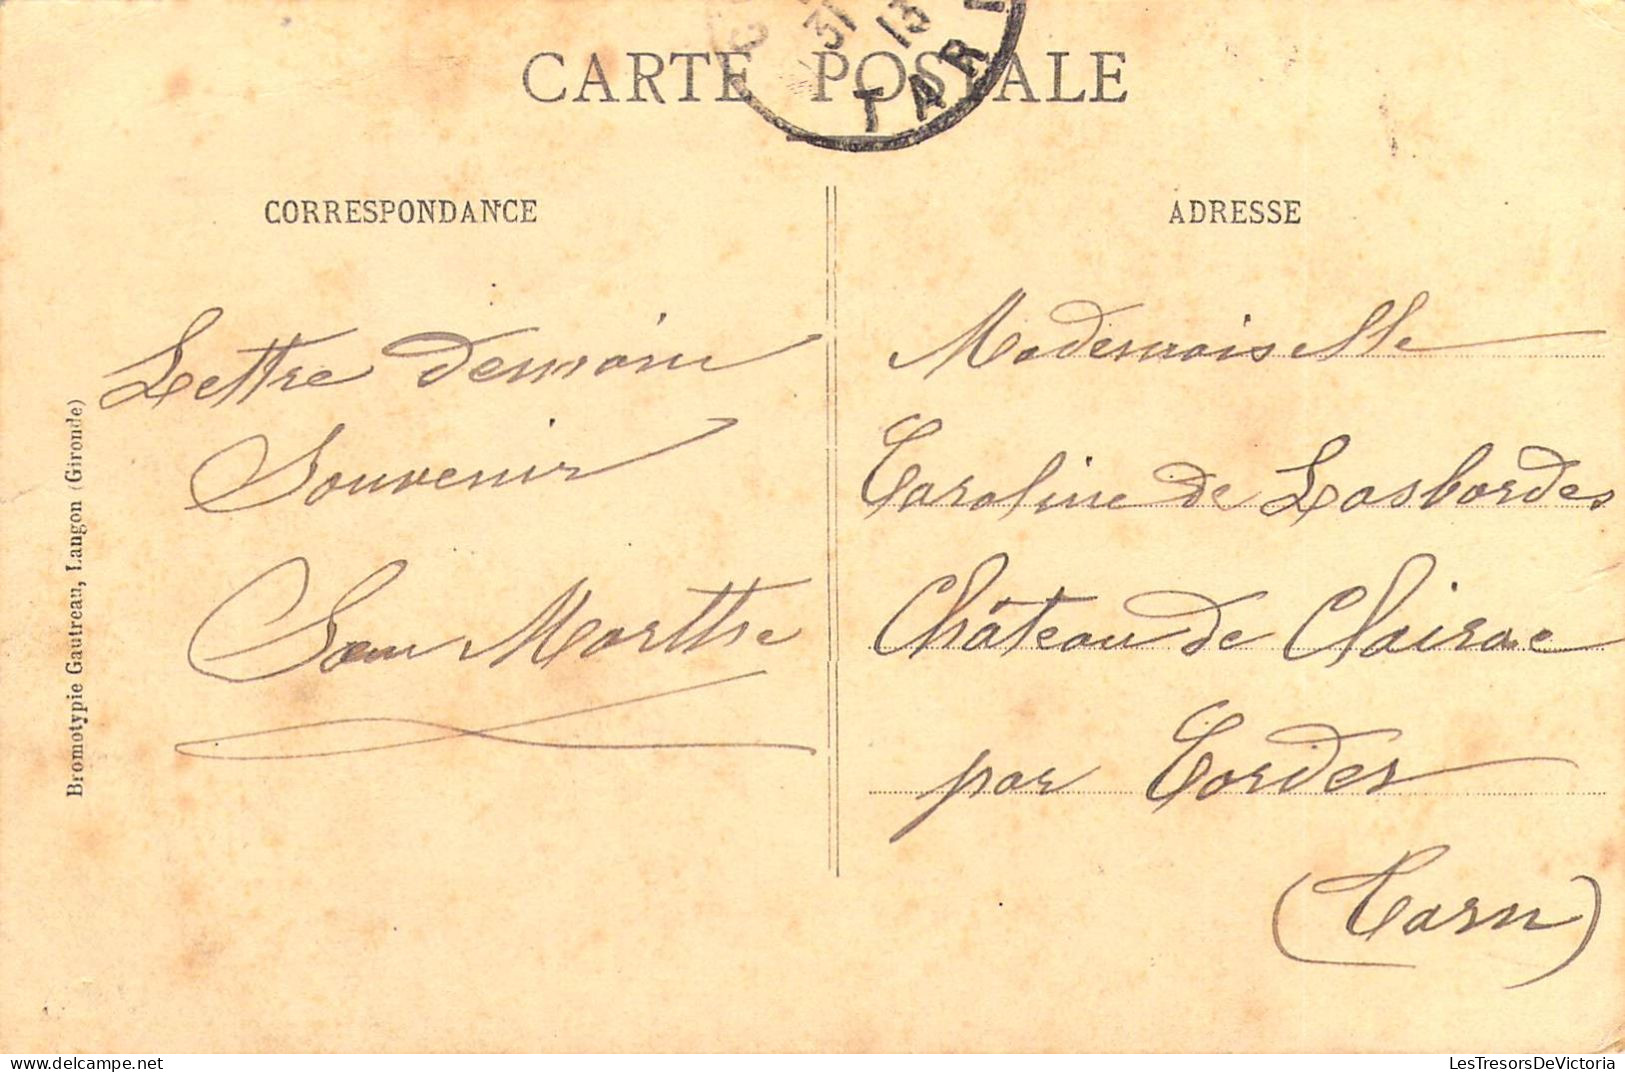 CARTE POSTALE
31
13
TARN
CORRESPONDANCE
ADRESSE
Lettre demain
Souvenir
Marthe
Mademoiselle
Caroline de Lasbordes
Château de Clairac
par Cordes
(Tarn)
Bromotypie Gautreau, Langon (Gironde)
LesTresorsDeVictoria